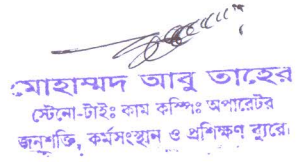 মোহাম্মদ আবু তাহের
স্টেনো-টাইঃ কাম কম্পিঃ অপারেটর
জনশক্তি, কর্মসংস্থান ও প্রশিক্ষণ ব্যুরো।